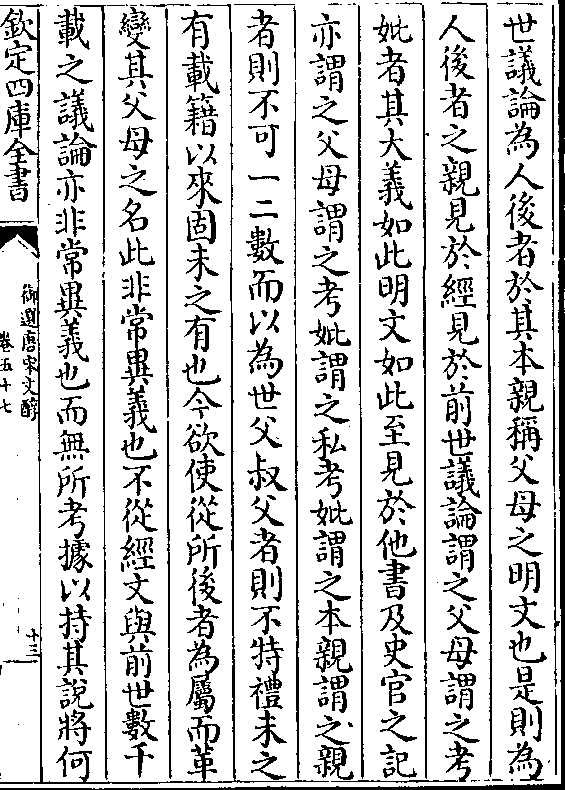 世議論為人後者於其本親稱父母之明文也是則為
人後者之親見於經見於前世議論謂之父母謂之考
妣者其大義如此明文如此至見於他書及史官之記
亦謂之父母謂之考妣謂之私考妣謂之本親謂之親
者則不可一二數而以為世父叔父者則不特禮未之
有載籍以來固未之有也今欲使從所後者為屬而革
變其父母之名此非常異義也不從經文與前世數千
載之議論亦非常異義也而無所考據以持其說將何
欽定四庫全書
御選唐宋文醇
卷五十七
十三